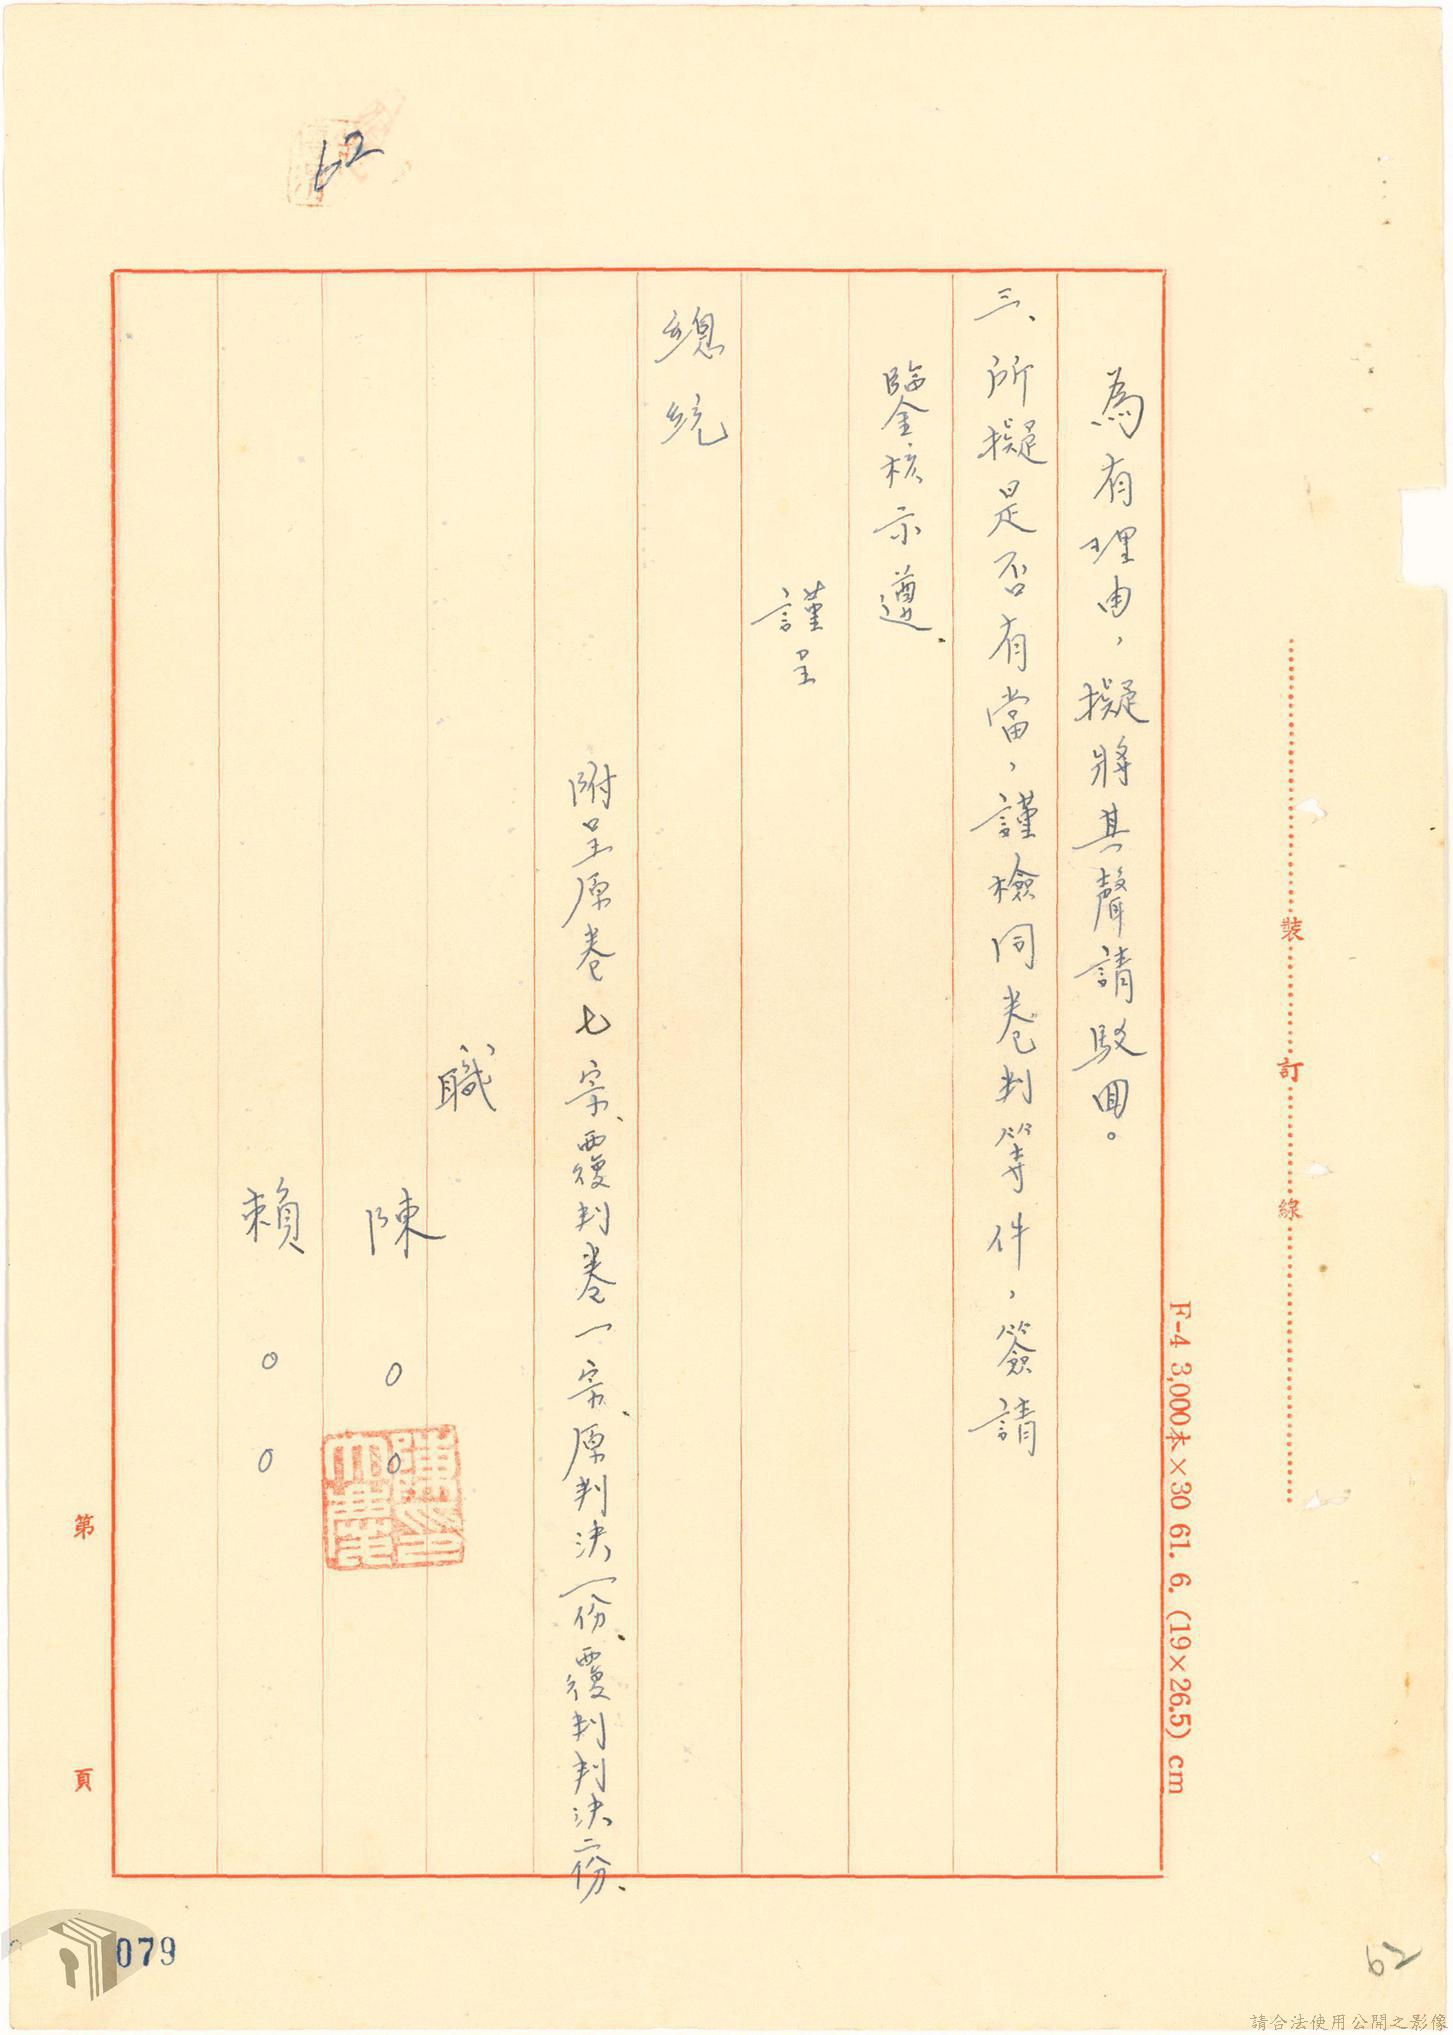 62
為有理由，擬將其聲請駁回。
三、所擬是否有當，謹檢同卷判等件，簽請
鑒核示遵．
謹呈
總統
附呈原卷七宗、覆判卷一宗、原判決一份、覆判判決二份．
職
陳○○
賴○○
裝訂線
F-4 3,000本×30 61. 6. (19×26.5) cm
第 頁
079
62
請合法使用公開之影像